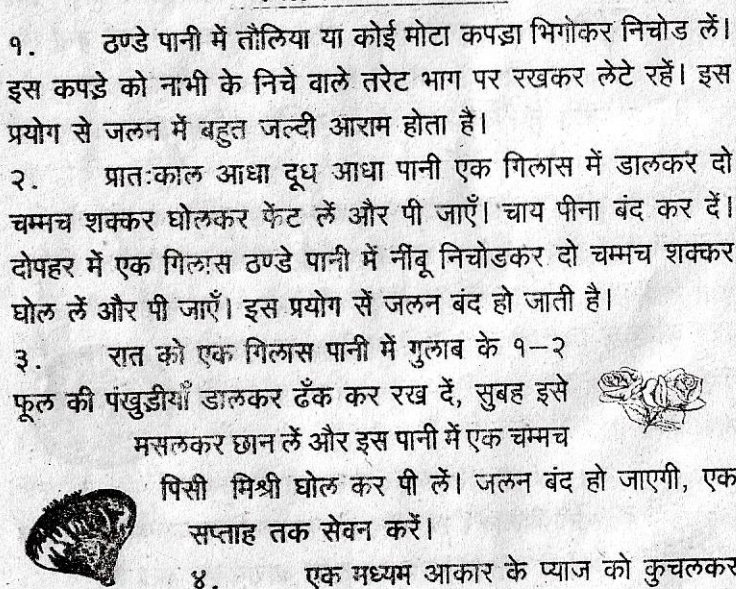 १. ठण्डे पानी में तौलिया या कोई मोटा कपड़ा भिगोकर निचोड लें।
इस कपड़े को नाभी के निचे वाले तरेट भाग पर रखकर लेटे रहें। इस
प्रयोग से जलन में बहुत जल्दी आराम होता है।
२. प्रातःकाल आधा दूध आधा पानी एक गिलास में डालकर दो
चम्मच शक्कर घोलकर फेंट लें और पी जाएँ। चाय पीना बंद कर दें।
दोपहर में एक गिलास ठण्डे पानी में नींबू निचोडकर दो चम्मच शक्कर
घोल लें और पी जाएँ। इस प्रयोग सें जलन बंद हो जाती है।
३. रात को एक गिलास पानी में गुलाब के १–२
फूल की पंखुड़ीयाँ डालकर ढँक कर रख दें, सुबह इसे
मसलकर छान लें और इस पानी में एक चम्मच
पिसी मिश्री घोल कर पी लें। जलन बंद हो जाएगी, एक
सप्ताह तक सेवन करें।
४. एक मध्यम आकार के प्याज को कुचलकर